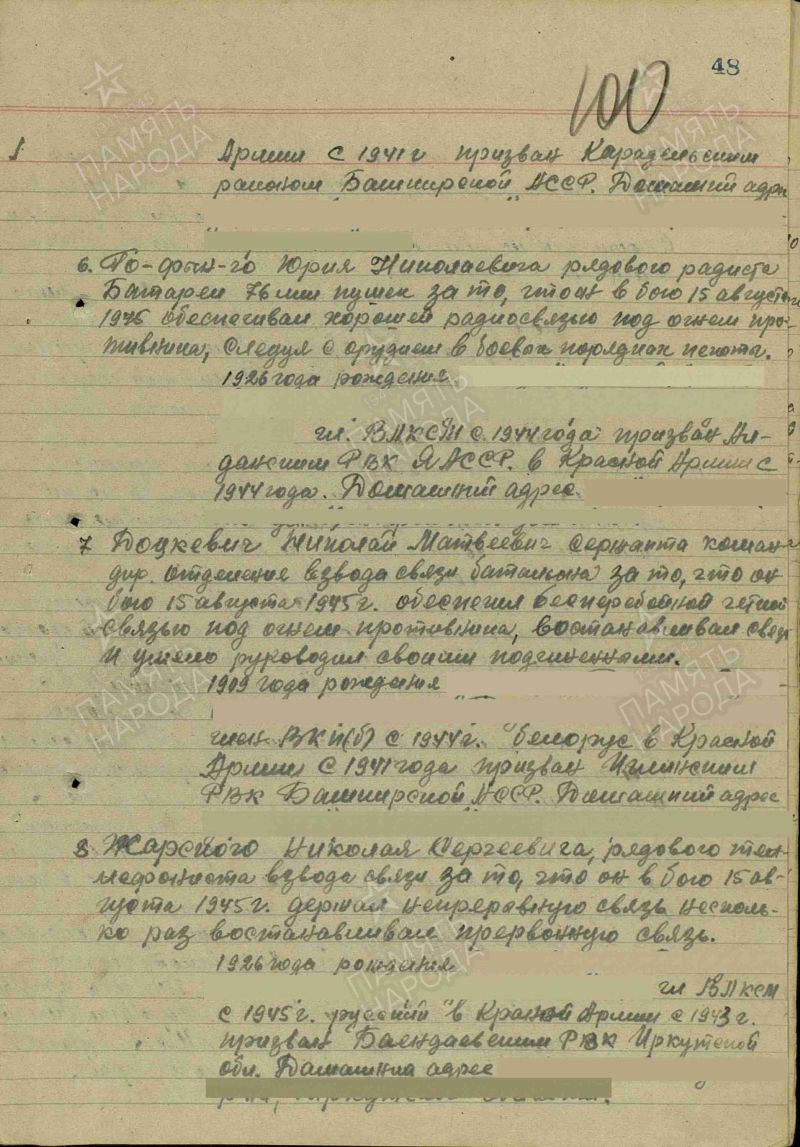 48
100
Армии с 1941 г призван Караидельским
райсном Башкирской АССР. Домашний адре
6. Го-фун-го Юрия Николаевича рядового радиста
Батареи 76 мм пушек за то, что он в бою 15 августа
1945 обеспечивал хорошей радиосвязью под огнем про-
тивника, следуя с орудием в боевых порядках пехоты.
1926 года рождения
чл. ВЛКСМ с 1944 года призван Ал-
данским РВК ЯАССР. в Красной Армии с
1944 года. Домашний адрес
7 Доцкевич Николай Матвеевич сержанта коман-
дир. отделения взвода связи батальона за то, что он
бою 15 августа 1945 г. обеспечил бесперебойной четкой
связью под огнем противника, Востанавливал связь
и умело руководил своими подчиненными.
1909 года рождения
член ВКП(б) с 1944 г. белорус в Красной
Армии с 1941 года призван
РВК Башкирской АССР. Домашний адрес
8 Жарского Николая Сергеевича, рядового теле-
фониста взвода связи за то, что он в бою 15 ав-
густа 1945 г. держал непрерывную связь несколь-
ко раз востанавливал прерванную связь.
1926 года рождения
чл ВЛКСМ
с 1945 г. русский в Красной Армии с 1943 г.
призван Баендаевским РВК Иркутской
обл. Домашний адрес
ПАМЯТЬ НАРОДА
ПАМЯТЬ НАРОДА
ПАМЯТЬ НАРОДА
ПАМЯТЬ НАРОДА
ПАМЯТЬ НАРОДА
ПАМЯТЬ НАРОДА